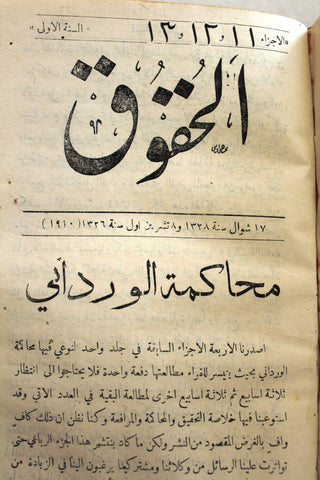 «الاجزاء ١١ و ١٢ و ١٣ «السنة الاولى»
الحقوق
١٧ شوال سنة ١٣٢٨ و ٨ تشرين اول سنة ١٣٢٦ (١٩١٠)
محاكمة الورداني
اصدرنا الاربعة الاجزاء السابقة في جلد واحد لنوعي فيها محاكمة
الورداني بحيث يتيسر للقراء مطالعتها دفعة واحدة فلا يحتاجوا الى انتظار
ثلاثة اسابيع ثم ثلاثة اسابيع اخرى لمطالعة البقية في العدد الآتي وقد
استوعبنا فيها خلاصة التحقيق والمحاكمة والمرافعة وكنا نظن ان ذلك كاف
واف بالغرض المقصود من النشر ولكن ما كاد ينتشر هذا الجزء الرباعي حتى
تواترت علينا الرسائل من وكلائنا ومشتركينا يرغبون الينا في الزيادة من